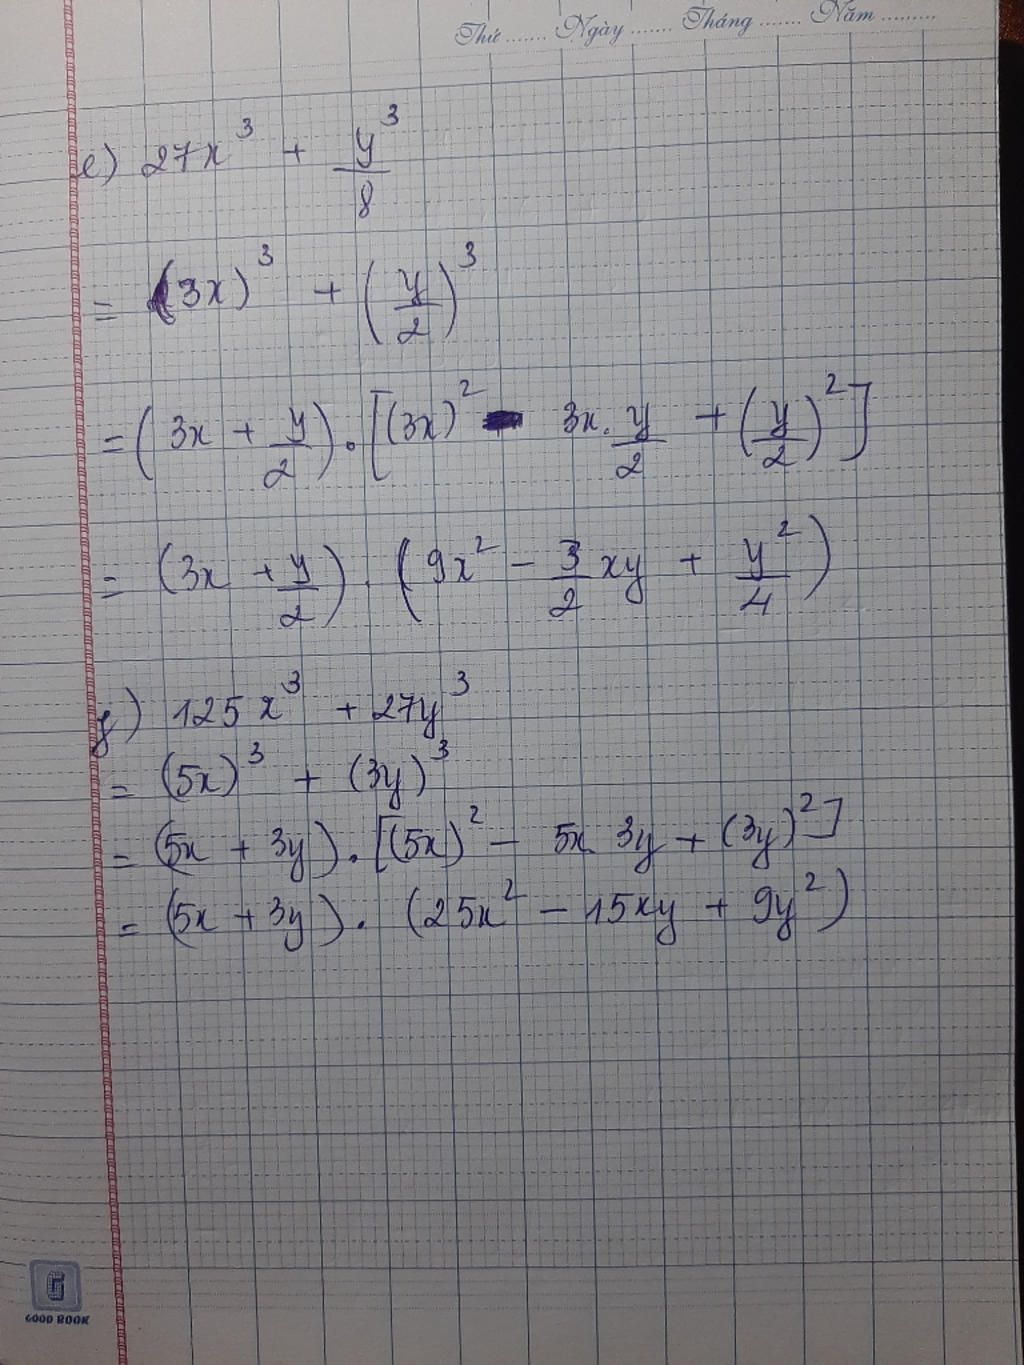 Thứ ....... Ngày ....... Tháng ....... Năm .........
e) 27x³ + y³/8
= (3x)³ + (y/2)³
= (3x + y/2) . [(3x)² - 3x. y/2 + (y/2)²]
= (3x + y/2) . (9x² - 3/2 xy + y²/4)
g) 125x³ + 27y³
= (5x)³ + (3y)³
= (5x + 3y) . [(5x)² - 5x. 3y + (3y)²]
= (5x + 3y) . (25x² - 15xy + 9y²)
G
GOOD BOOK